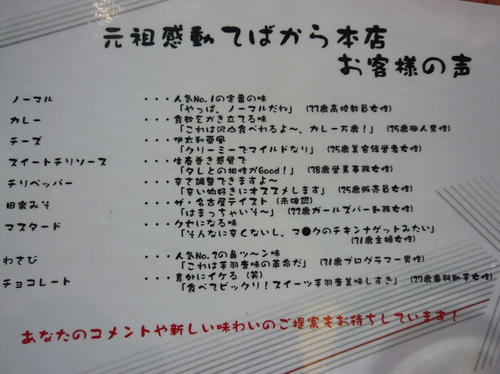 元祖感動てばから本店
お客様の声
ノーマル ・・・人気No.1の定番の味
「やっぱ、ノーマルだね」(33歳高校教員女性)
カレー ・・・食欲をかき立てる味
「これは沢山食べれるよ～、カレー万歳!」(25歳職人男性)
チーズ ・・・伊太利亜風
「クリーミーでマイルドなり」(25歳美容経営者女性)
スイートチリソース ・・・生春巻き感覚で
「タレとの相性がGood!」(28歳営業事務女性)
チリペッパー ・・・辛さ調整できますよ～
「辛い物好きにオススメします」(25歳販売員女性)
田楽みそ ・・・ザ・名古屋テイスト(未確認)
「はまっちゃいそ～」(22歳ガールズバー勤務女性)
マスタード ・・・クセになる味
「そんなに辛くないし、マ●クのチキンナゲットみたい」
(31歳主婦女性)
わさび ・・・人気No.2の鼻ツ～ン味
「これは手羽唐味の革命だ」(31歳プログラマー男性)
チョコレート ・・・意外にイケる(笑)
「食べてビックリ!スイーツ手羽唐美味しすき」(27歳歯科助手女性)
あなたのコメントや新しい味わいのご提案もお待ちしています!